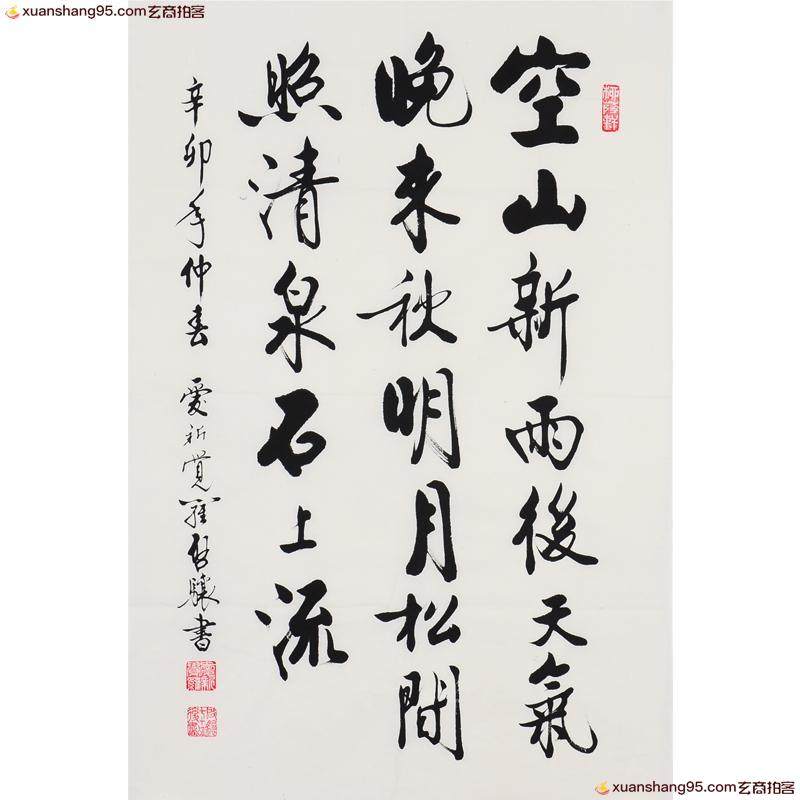 xuanshang95.com玄商拍客
xuanshang95.com玄商拍客
空山新雨後天氣
晚来秋明月松間
照清泉石上流
辛卯年仲春 愛新覺羅啟驤書
xuanshang95.com玄商拍客